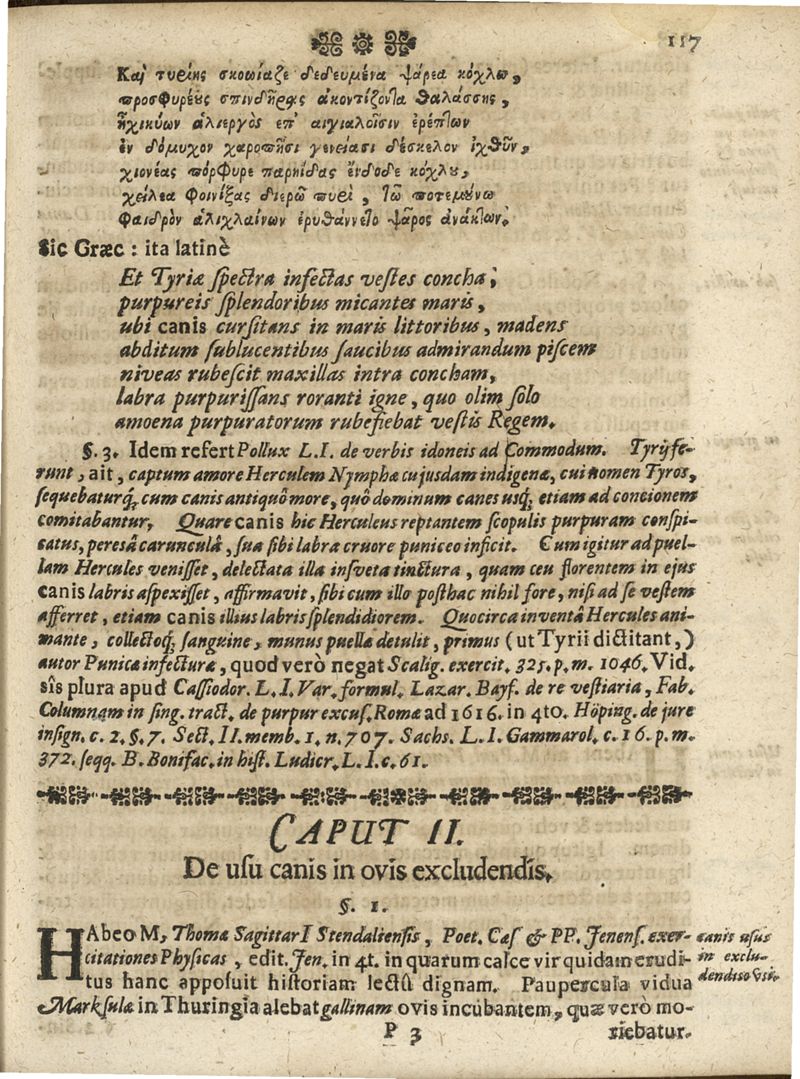 117
Καὶ τυρίης σκοπίαζε δεδευμένα φάρεα κόχλῳ,
προσφυρέυς σπινθῆρας ἀκοντίζοντα θαλάσσης,
ἧχικύων ἁλιεργὸς ἐπ' αἰγιαλοῖσιν ἐρέπτων
ἐν δόμυχον χαροπῆσι γενείασι δέσκελον ἰχθῦν,
χιονέας πόρφυρε παρηίδας ἔνδοθε κόχλου,
χείλεα φοινίξας διερῷ πυρὶ, τῷ ποτεμούνῳ
Φαιδρὸν ἁλιχλαίνων ἐρυθάννετο φᾶρος ἀνάκτων.
Sic Græc: ita latinè
Et Tyriæ spectra infectas vestes concha;
purpureis splendoribus micantes maris,
ubi canis cursitans in maris littoribus, madens
abditum sublucentibus faucibus admirandum piscem
niveas rubescit maxillas intra concham,
labra purpurissans roranti igne, quo olim solo
amoena purpuratorum rubefiebat vestis Regem.
§. 3. Idem refert Pollux L.I. de verbis idoneis ad Commodum. Tyrij fe-
runt, ait, captum amore Herculem Nymphæ cujusdam indigenæ, cui nomen Tyros,
sequebaturq; cum canis antiquô more, quô dominum canes usq; etiam ad concionem
comitabantur. Quare canis hic Herculeus reptantem scopulis purpuram conspi-
catus, peresâ carunculâ, sua sibi labra cruore puniceo inficit. Cum igitur ad puel-
lam Hercules venisset, delectata illa insveta tinctura, quam ceu florentem in ejus
canis labris aspexisset, affirmavit, sibi cum illo posthac nihil fore, nisi ad se vestem
afferret, etiam canis illius labris splendidiorem. Quocirca inventâ Hercules ani-
mante, collectoq; sanguine, munus puellæ detulit, primus (ut Tyrii dictitant,)
autor Punicæ infecturæ, quod verò negat Scalig. exercit. 325. p. m. 1046. Vid.
sîs plura apud Cassiodor. L. I. Var. formul. Lazar. Bayf. de re vestiaria, Fab.
Columnam in sing. tract. de purpur excus. Romæ ad 1616. in 4to. Höping. de jure
insign. c. 2. §. 7. Sect. II. memb. 1. n. 707. Sachs. L. I. Gammarol. c. 16. p. m.
372. seqq. B. Bonifac. in hist. Ludicr. L. I. c. 61.
CAPUT II.
De usu canis in ovis excludendis.
§. 1.
HAbeo M. Thomæ SagittarI Stendaliensis, Poet. Cæs & PP. Jenens. exer-
citationes Physicas, edit. Jen. in 4t. in quarum calce vir quidam erudi-
tus hanc apposuit historiam lectû dignam. Paupercula vidua
Marksulæ in Thuringia alebat gallinam ovis incubantem, quæ verò mo-
canis usus
in exclu-
dendis ovis.
P 3
riebatur.